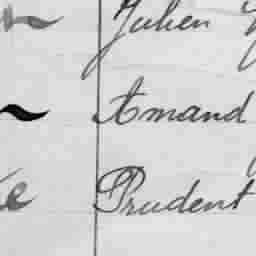 Julien
Amand
Prudent